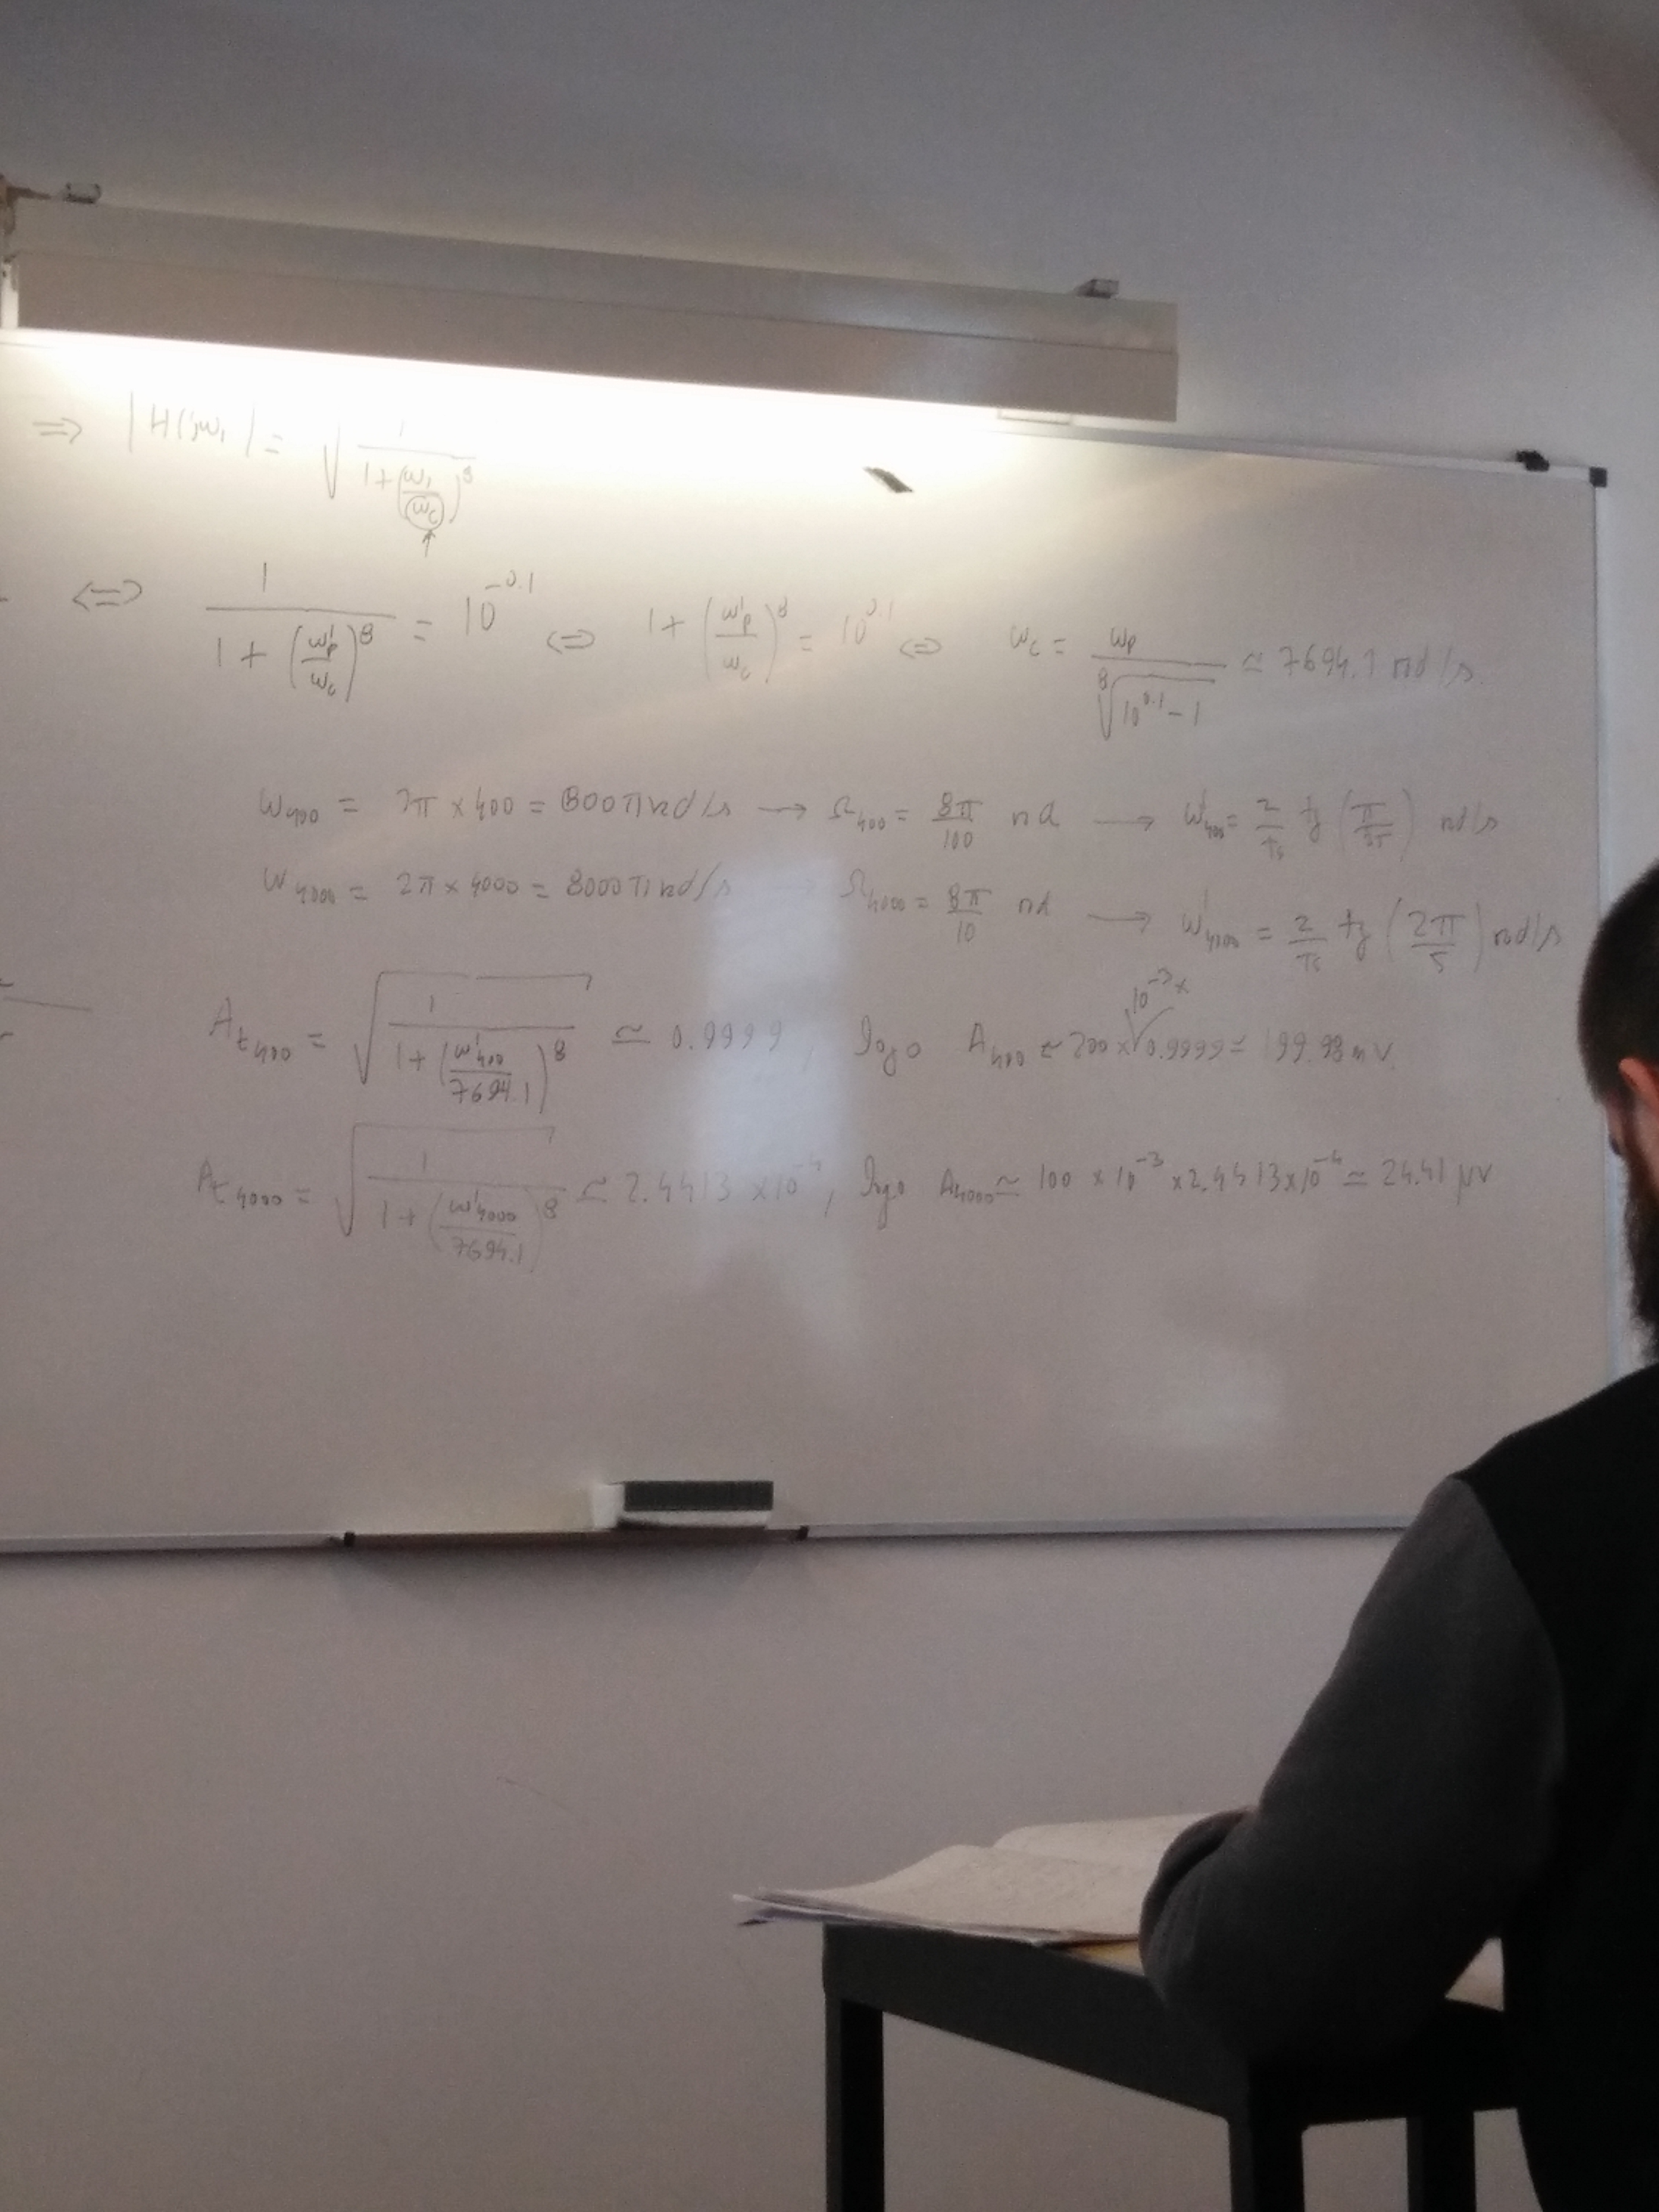 ⇒ |H(jω₁| = √(1/(1+(ω₁/ωc)^8))
↑
⇔ 1/(1+(ω'p/ωc)^8) = 10^-0.1 ⇔ 1+(ω'p/ωc)^8 = 10^0.1 ⇔ ωc = ωp/⁸√(10^0.1 - 1) ≃ 7694.1 rad/s.
ω400 = 2π × 400 = 800π rad/s → Ω400 = 8π/100 rad → ω'400 = 2/Ts tg(π/25) rad/s
ω4000 = 2π × 4000 = 8000π rad/s → Ω4000 = 8π/10 rad → ω'4000 = 2/Ts tg(2π/5) rad/s
At400 = √(1/(1+(ω'400/7694.1)^8)) ≃ 0.9999, logo A400 ≃ 200 × 10^-3 × 0.9999 = 199.98 mV.
At4000 = √(1/(1+(ω'4000/7694.1)^8)) ≃ 2.4413 × 10^-4, logo A4000 ≃ 100 × 10^-3 × 2.4413 × 10^-4 ≃ 24.41 μV